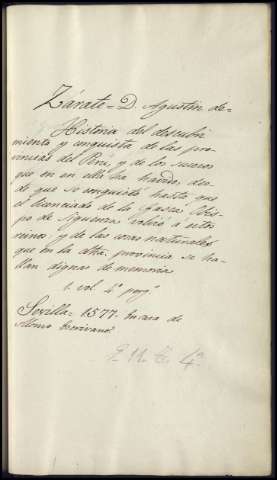 Zárate = D. Agustín de =
Historia del descubri
miento y conquista de las pro
vincias del Perú, y de los sucesos
que en ella ha havido, des
de que se conquistó hasta que
el licenciado de la Gasca Obis
po de Siguenza volvió á estos
reinos; y de las cosas naturales
que en la dha. provincia se ha
llan dignas de memoria
1. vol. 4º perg.º
Sevilla = 1577. En casa de
Alonso Escrivano.
4ª